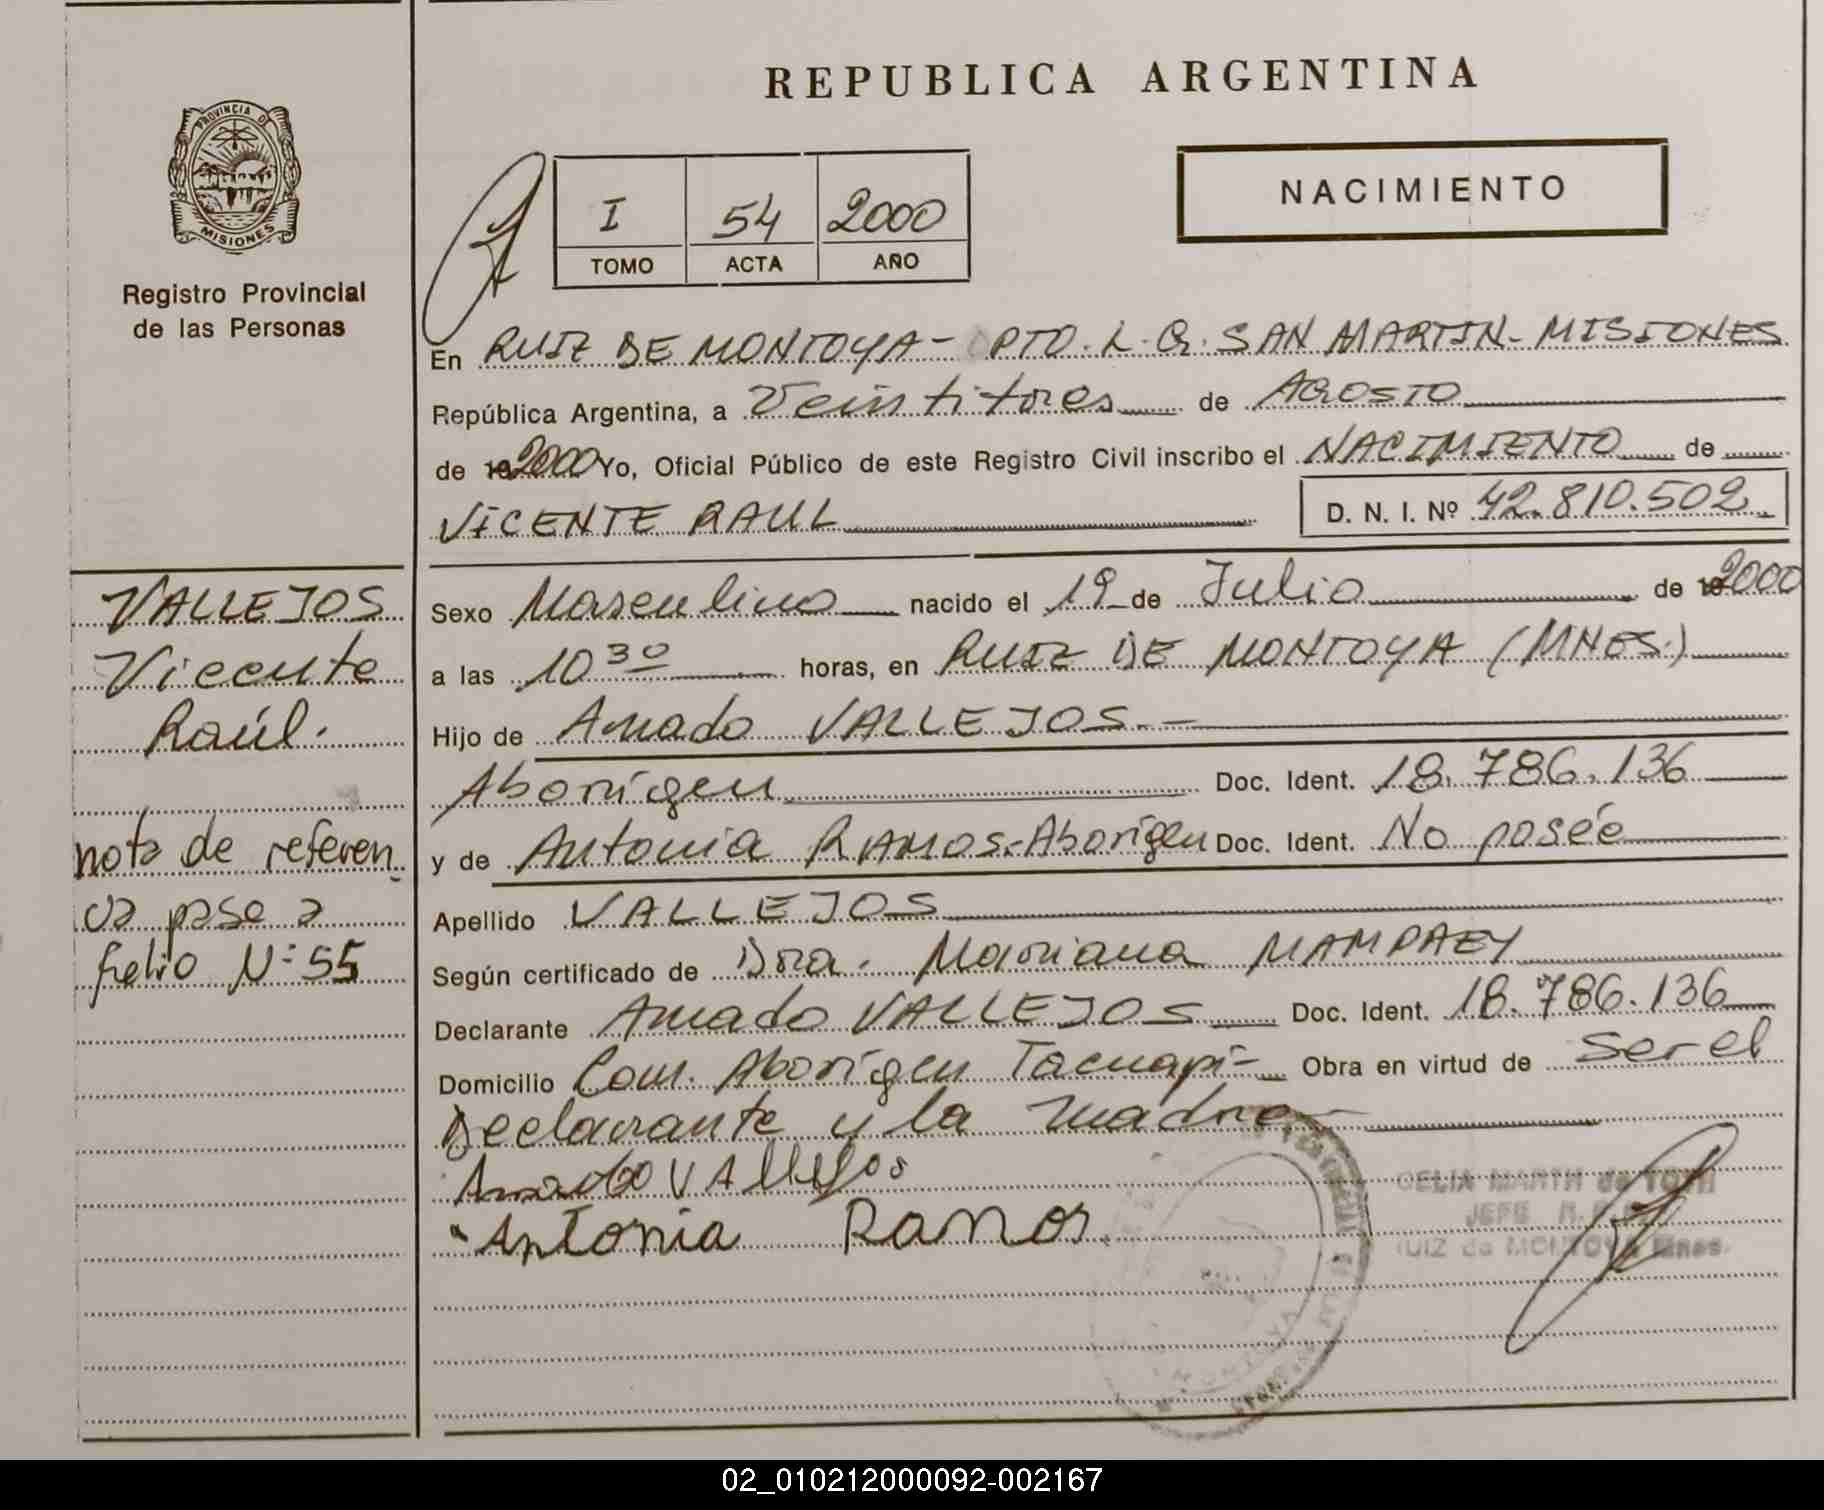 PROVINCIA DE
MISIONES
Registro Provincial
de las Personas
VALLEJOS
Vicente
Raúl.
nota de referen
cia pase a
folio Nº 55
REPUBLICA ARGENTINA
I 54 2000
TOMO ACTA AÑO
NACIMIENTO
En RUIZ DE MONTOYA - DPTO. L. G. SAN MARTIN - MISIONES
República Argentina, a Veintitres de AGOSTO
de 19 2000 Yo, Oficial Público de este Registro Civil inscribo el NACIMIENTO de
VICENTE RAUL D. N. I. Nº 42.810.502
Sexo Masculino nacido el 19 de Julio de 19 2000
a las 10 30 horas, en RUIZ DE MONTOYA (MNES.)
Hijo de Amado VALLEJOS.-
Aborígen Doc. Ident. 18.786.136
y de Antonia RAMOS.-Aborígen Doc. Ident. No posée
Apellido VALLEJOS
Según certificado de Dra. Mariana MAMPAEY
Declarante Amado VALLEJOS Doc. Ident. 18.786.136
Domicilio Com. Aborígen Tacuapí- Obra en virtud de ser el
Declarante y la madre
Amado VAllejos
Antonia Ramos
CELIA MARTH de TOTH
JEFE
RUIZ de MONTOYA Mnes.
02_010212000092-002167